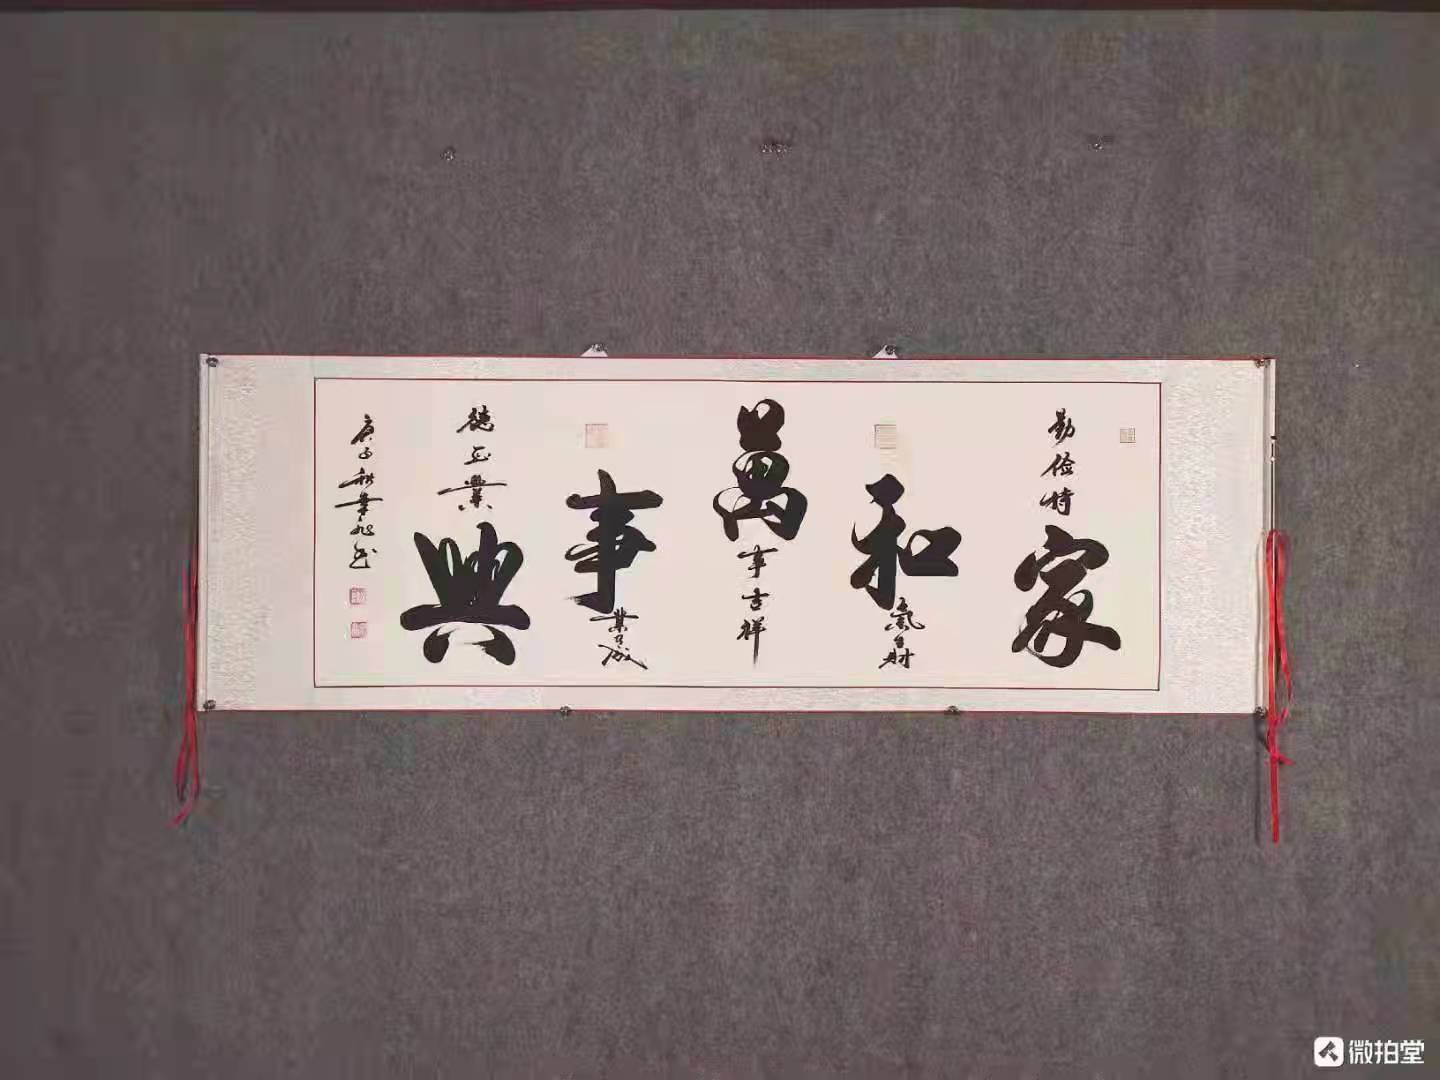 勤儉持家
和氣生財
萬事吉祥
事業乃成
德正業興
庚子秋
微拍堂